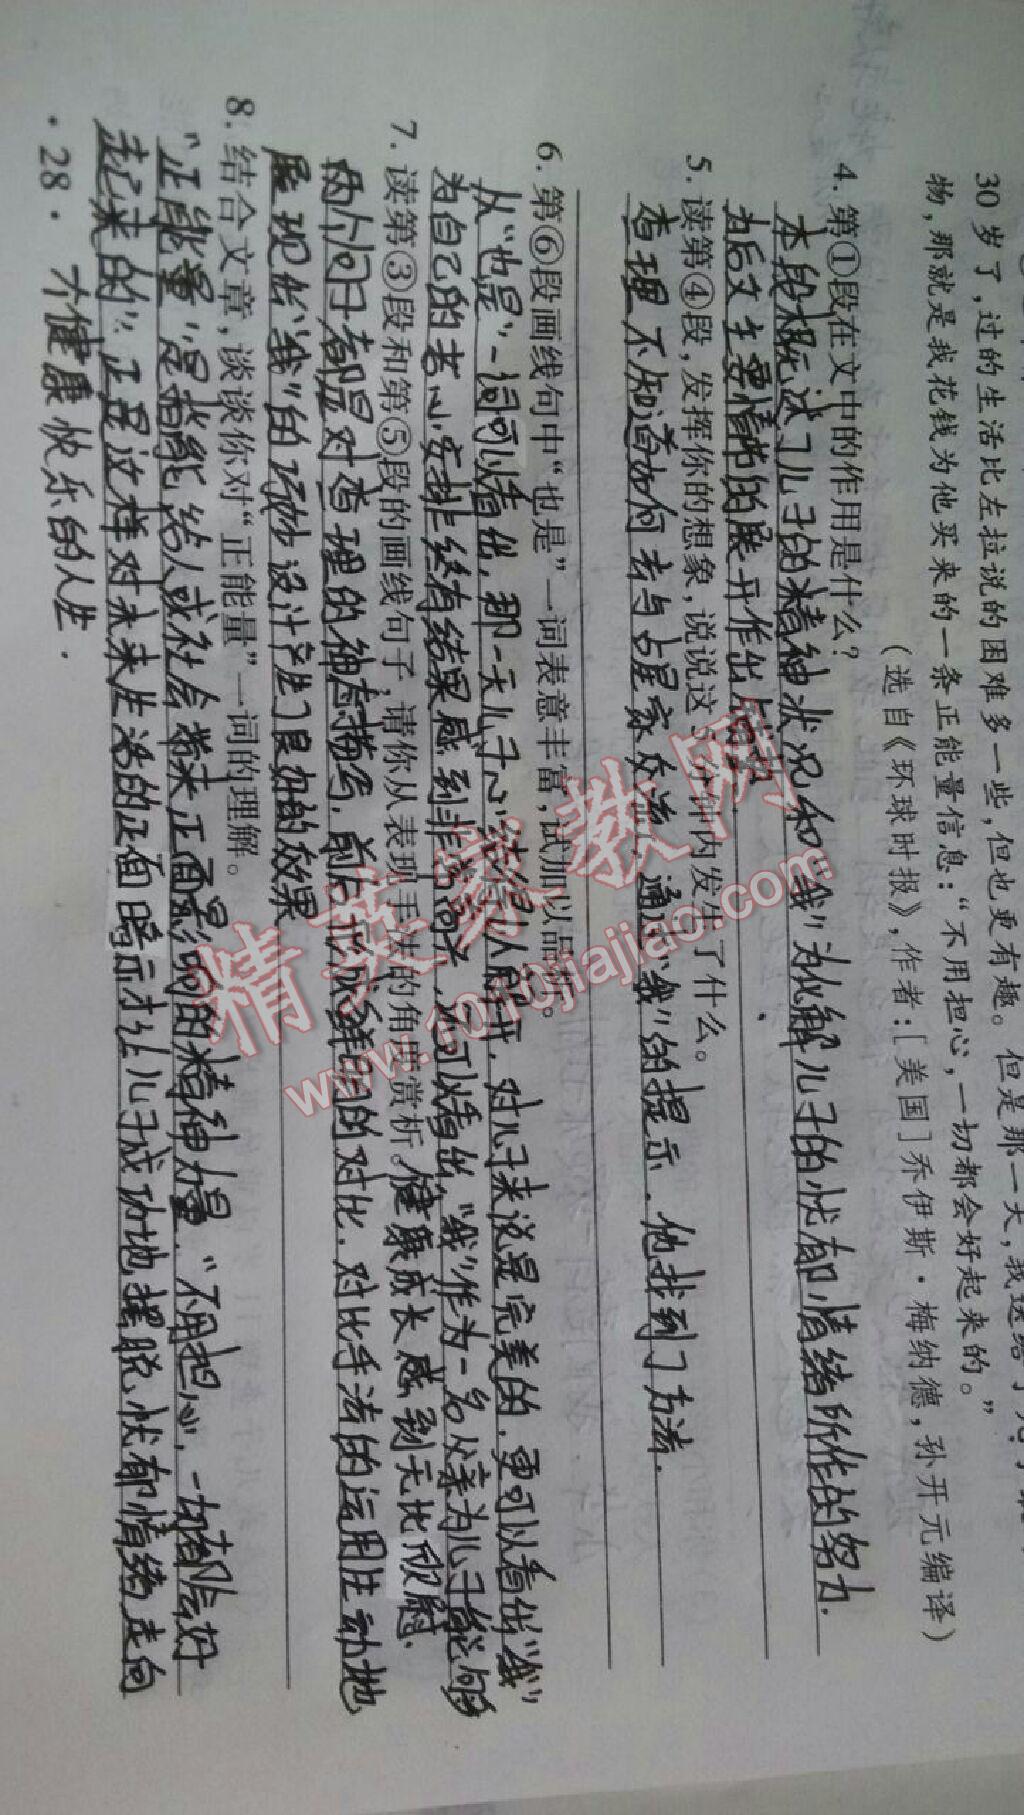 30岁了,过的生活比左拉说的困难多一些,但也更有趣。但是那一天,我送给了儿子
物,那就是我花钱为他买来的一条正能量信息:“不用担心,一切都会好起来的。”
(选自《环球时报》,作者:[美国]乔伊斯·梅纳德,孙开元编译)
4. 第①段在文中的作用是什么?
本段概述了儿子的精神状况和“我”为化解儿子的忧郁情绪所作的努力.
为后文主要情节的展开作出铺垫
5. 读第④段,发挥你的想象,说说这5分钟内发生了什么。
查理不知道如何去与占星家交流,通过“我”的提示.他找到了方法.
6. 第⑥段画线句中“也是”一词表意丰富,试加以品析。
从“也是”一词可以看出,那一天儿子心结得以解开,对儿子来说是完美的,更可以看出“我”
为自己的苦心安排终有结果感到非常高兴,也可以看出,“我”作为一名父亲为儿子能够
健康成长感到无比欣慰.
7. 读第③段和第⑤段的画线句子,请你从表现手法的角度赏析。
两个句子都是对查理的神态描写,前后形成鲜明的对比.对比手法的运用生动地
展现出“我”的巧妙设计产生了良好的效果
8. 结合文章,谈谈你对“正能量”一词的理解。
“正能量”是指能给人或社会带来正面影响的精神力量.“不用担心,一切都会好
起来的”.正是这样对未来生活的正面暗示才让儿子成功地摆脱忧郁情绪走向
个健康快乐的人生.
·28·
精英家教网
www.1010jiajiao.com